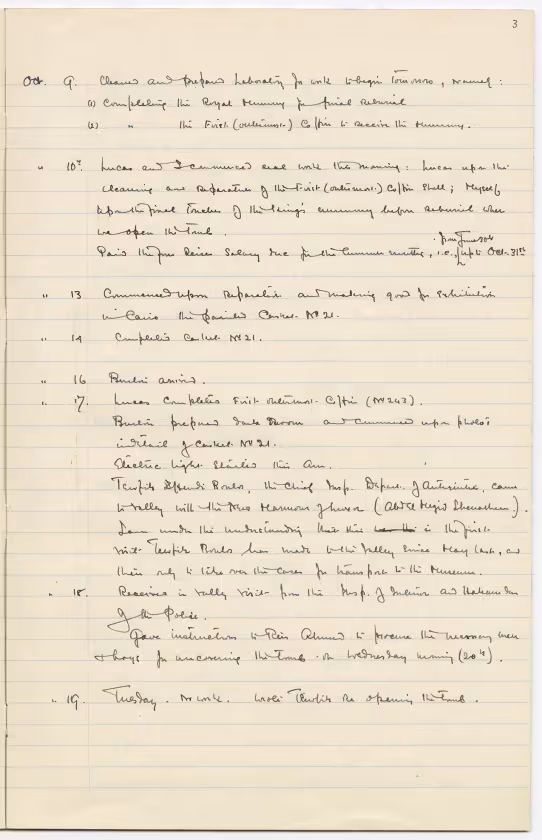 3
Oct. 9. Cleaned and prepared Laboratory for work to begin tomorrow, namely:
a) Completing the Royal Mummy for final reburial
b) " the First (outermost) Coffin to receive the Mummy.
" 10th Lucas and I commenced real work this morning: Lucas upon the
cleaning and reparation of the First (outermost) Coffin Shell; Myself
upon the final touches of the King's mummy before reburial when
we open the tomb.
from June 30th
Paid the four Reises Salary due for the Summer months, i.e., up to Oct. 31st
" 13 Commenced upon reparation and making good for exhibition
in Cairo the painted Casket No 21.
" 14 Completed Casket No 21.
" 16 Burton arrived.
" 17. Lucas completed First outermost Coffin (No 243).
Burton prepared dark Room and commenced upon photos
in detail of Casket No 21.
Electric light started this
Tewfik Effendi Boulos, the Chief Insp. Depart. of Antiquities, came
to Valley with the new Mamour of Luxor (Abd el Megid).
I am under the understanding that this is the first
visit Tewfik Boulos has made to the Valley since May last, and
then only to take over the cases for transport to the Museum.
" 18. Received in Valley visit from the Insp. of Interior and Hakimdar
of the Police.
Gave instructions to Reis Ahmed to procure the necessary men
& boys for uncovering the tomb on Wednesday morning (20th).
" 19. Tuesday. No work. Wrote Tewfik re opening the tomb.